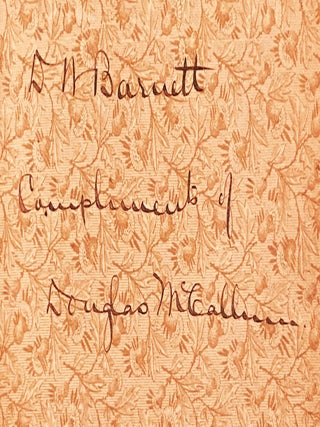 D W Barnett
Compliments of
Douglas McCallum.